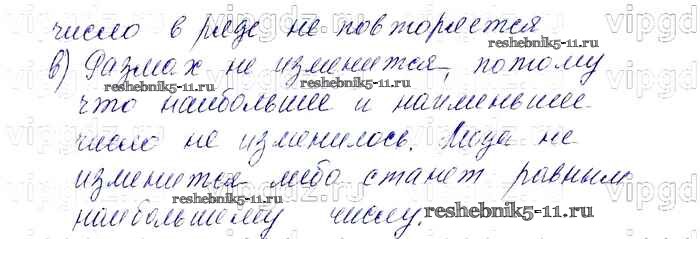 число в ряде не повторяется
в) Размах не изменится, потому
что наибольшее и наименьшее
число не изменилось. Мода не
изменится либо станет равным
наибольшему числу.
reshebnik5-11.ru
reshebnik5-11.ru
reshebnik5-11.ru
reshebnik5-11.ru
reshebnik5-11.ru
vipgdz.ru